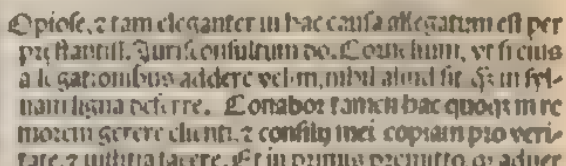 Opiose, ⁊ tam eleganter in hac causa allegatum est per
prestantiss. Jurisconsultum do. Corn. hunc, vt si eius
allegationibus addere velim, nihil aliud sit, q̃ in syl-
uam ligna deferre. Conabor tamen hac quoq; in re
morem gerere clienti, ⁊ consilij mei copiam pro veri-
tate, ⁊ iustitia facere. Et in primis premitto